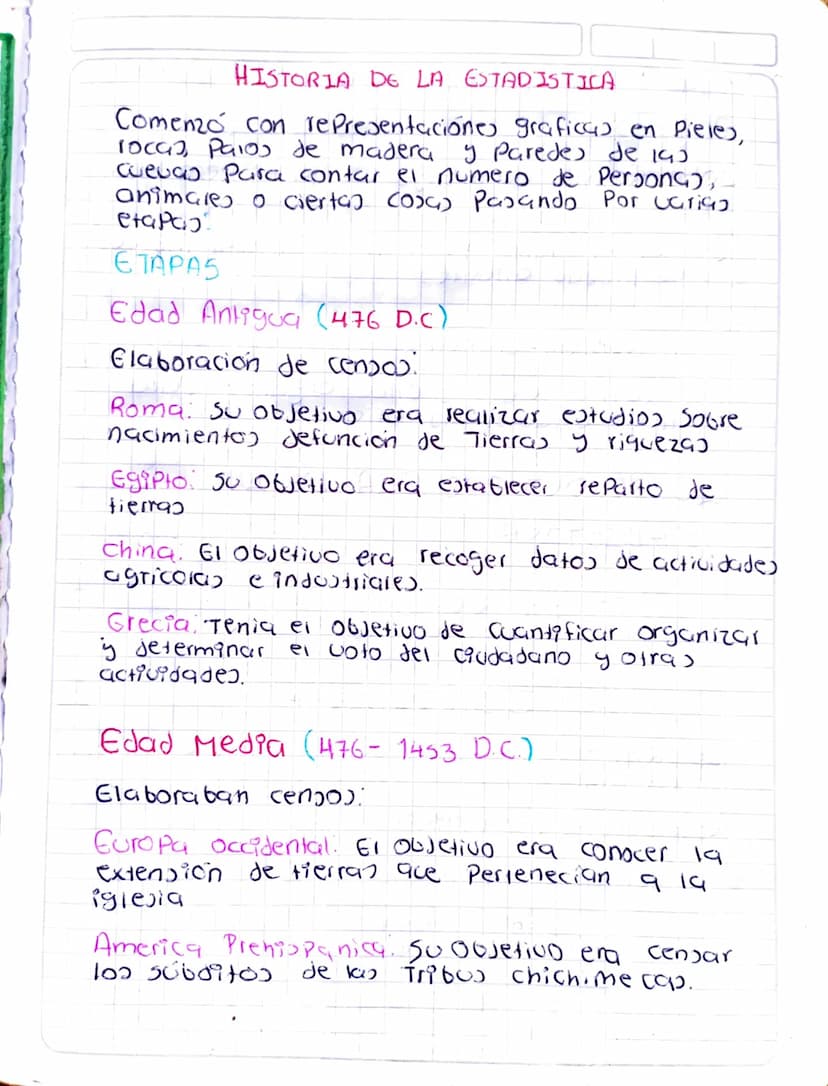 HISTORIA DE LA ESTADISTICA
Comenzó con representaciónes graficas en Pieles,
rocas, Palos de madera y Paredes de las
cuevas Para contar el numero de Personas,
animales o ciertas cosas Pasando Por varias
etapas:
ETAPAS
Edad Antigua (476 D.C)
Elaboración de censos:
Roma: Su objetivo era realizar estudios Sobre
nacimientos defunción de Tierras y riquezas
Egipto: Su Objetivo era establecer reparto de
tierras
China: El Objetivo era recoger datos de actividades
agricolas e industriales.
Grecia: Tenia el Objetivo de Cuantificar organizar
y determinar el voto del ciudadano y otras
actividades.
Edad Media (476- 1453 D.C.)
Elaboraban censos:
Europa occidental: El Objetivo era conocer la
extensión de tierras que Pertenecian a la
iglesia
America Prehispanica: Su Objetivo era censar
los súbditos de las Tribus chichimecas.